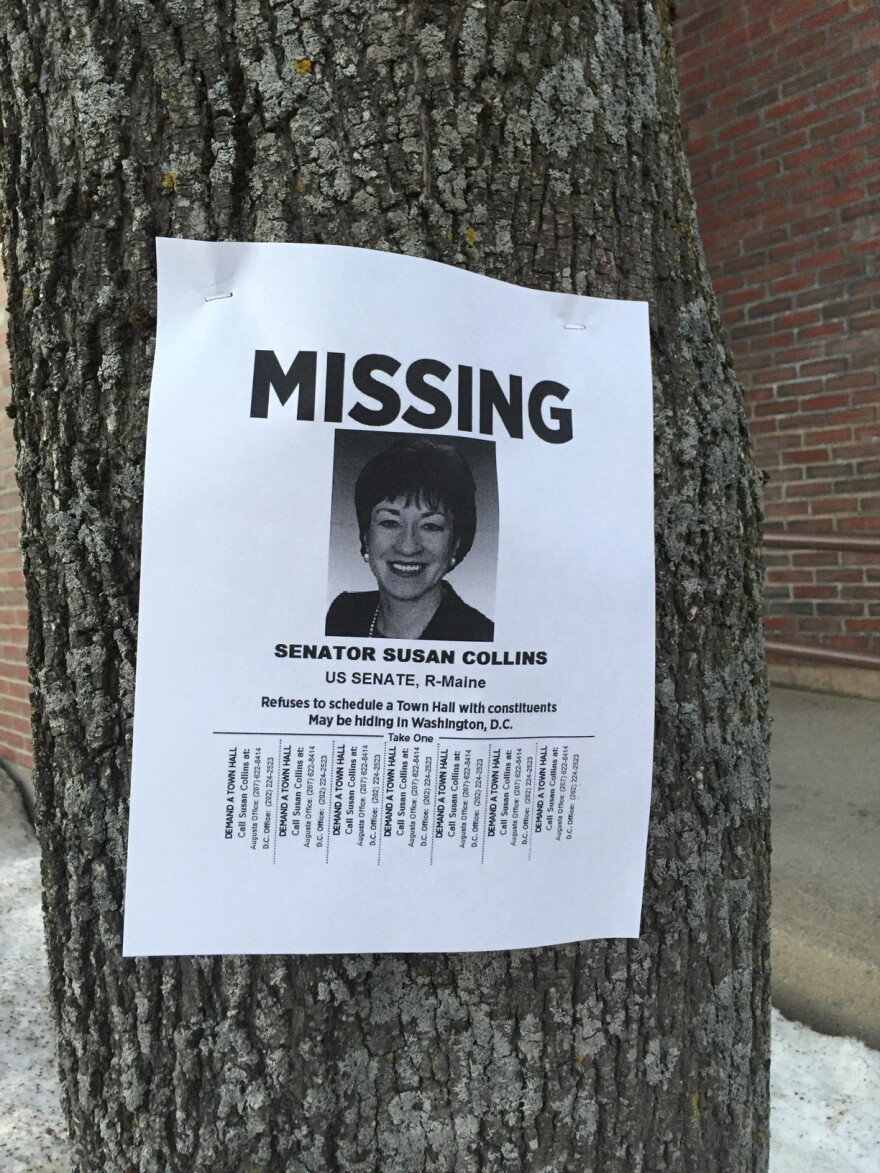 MISSING
SENATOR SUSAN COLLINS
US SENATE, R-Maine
Refuses to schedule a Town Hall with constituents
May be hiding in Washington, D.C.
Take One
DEMAND A TOWN HALL
Call Susan Collins at:
Augusta Office: (207) 622-8414
D.C. Office: (202) 224-2523
DEMAND A TOWN HALL
Call Susan Collins at:
Augusta Office: (207) 622-8414
D.C. Office: (202) 224-2523
DEMAND A TOWN HALL
Call Susan Collins at:
Augusta Office: (207) 622-8414
D.C. Office: (202) 224-2523
DEMAND A TOWN HALL
Call Susan Collins at:
Augusta Office: (207) 622-8414
D.C. Office: (202) 224-2523
DEMAND A TOWN HALL
Call Susan Collins at:
Augusta Office: (207) 622-8414
D.C. Office: (202) 224-2523
DEMAND A TOWN HALL
Call Susan Collins at:
Augusta Office: (207) 622-8414
D.C. Office: (202) 224-2523
DEMAND A TOWN HALL
Call Susan Collins at:
Augusta Office: (207) 622-8414
D.C. Office: (202) 224-2523